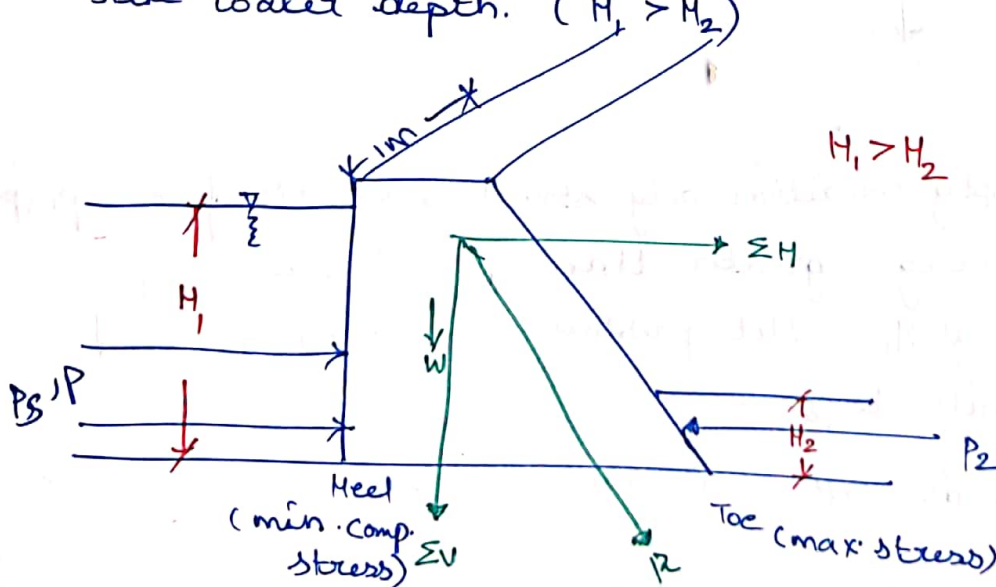 water depth. (H₁ > H₂)
1m
H₁ > H₂
ΣH
H₁
W
Ps, P
H₂
P₂
Heel
(min. comp.
stress)
ΣV
R
Toe (max. stress)